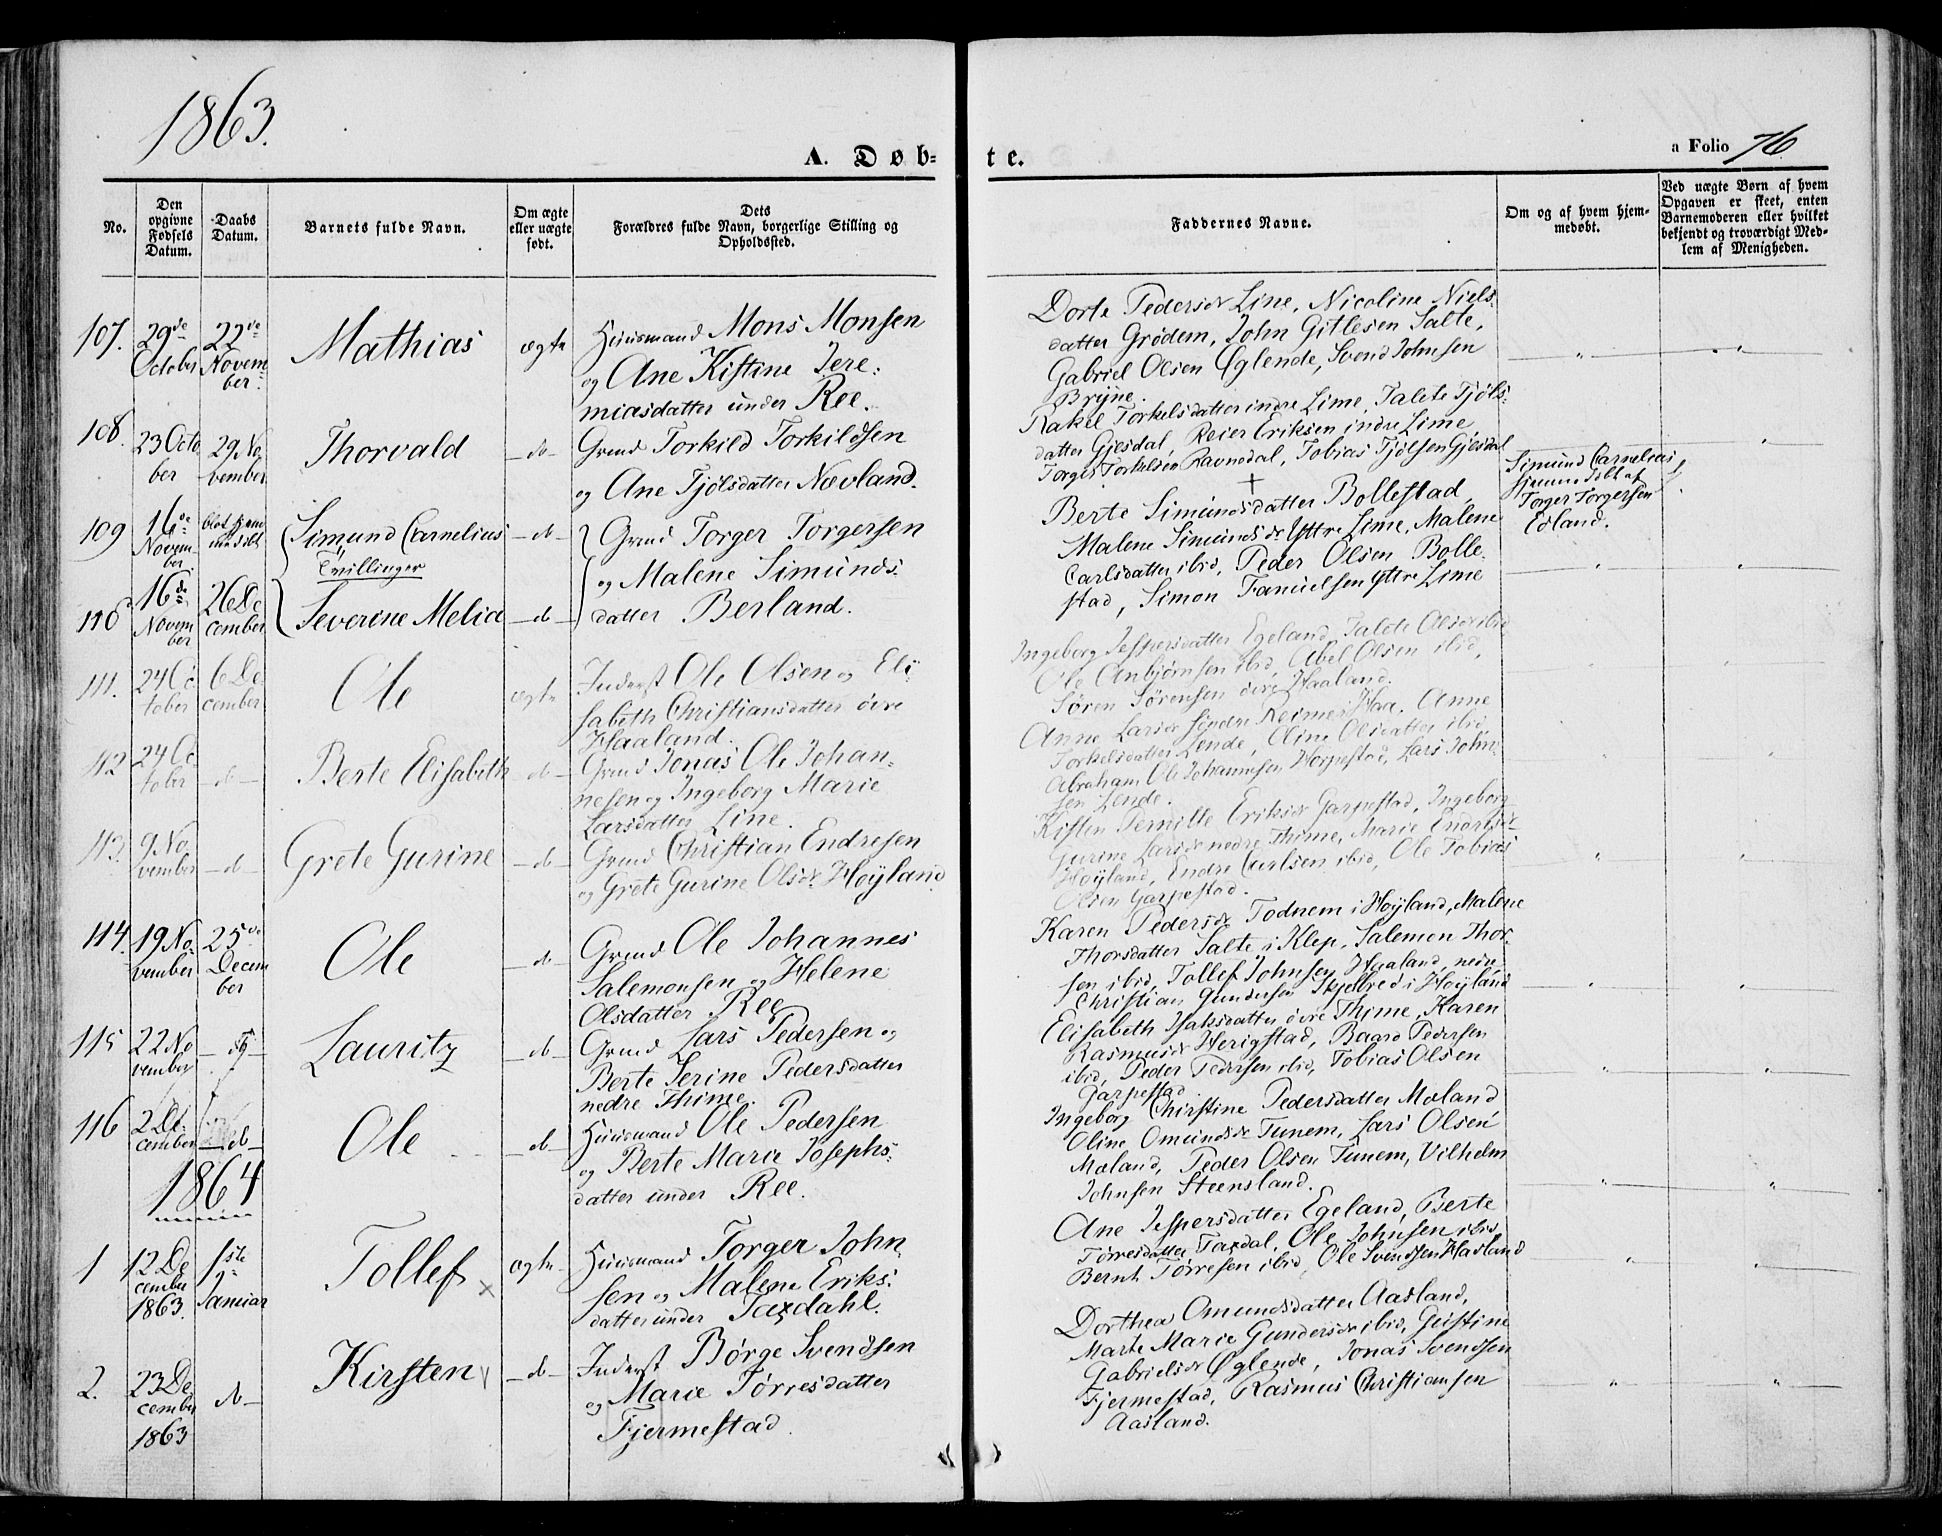 1863.
A. Døb-
te.
a Folio 76
No.
Den opgivne Fødsels Datum.
Daabs Datum.
Barnets fulde Navn.
Om ægte eller uægte født.
Dets Forældres fulde Navn, borgerlige Stilling og Opholdssted.
Faddernes Navne.
Om og af hvem hjem-
medøbt.
Ved uægte Børn af hvem
Opgaven er skeet, enten
Barnemoderen eller hvilket
bekjendt og troværdigt Med-
lem af Menigheden.
107.
29de October
22de Novem-
ber.
Mathias
ægte
Huusmand Mons Monsen
og Ane Kistine Jere-
miasdatter under Ree.
Dorte Pedersdr Line, Nicoline Niels-
datter Grødem, John Gitlesen Salte,
Gabriel Olsen Øglende, Svend Johnsen
Bryne.
108.
23 Octo
ber
29 No
vember
Thorvald
do
Grmd Torkild Torkildsen
og Ane Tjølsdatter Nævland.
Rakel Torkelsdatter indre Lime, Talete Tjøls-
datter Gjesdal, Reier Eriksen indre Lime,
Torger Torkelsen Ravndal, Tobias Tjølsen Gjesdal
109
16de
Novem-
ber
Simund Cornelius
Tvillinger
do
Grmd Torger Torgersen
og Malene Simunds-
datter Berland.
Berte Simundsdatter Bollestad,
Malene Simundsdr Yttre Lime, Malene
Carlsdatter ibid, Peder Olsen Bolle-
stad, Simon Samuelsen Yttre Lime
Simund Cornelius
hjemmedøbt af
Torger Torgersen
Edland.
110
16de
Novem
ber
26 De
cember
Severine Melia
do
111.
24 Oc
tober
6 De
cember
Ole
ægte
Inderst Ole Olsen og Eli-
sabeth Christiansdatter övre
Haaland.
Ingeborg Jespersdatter Egeland, Talete Olsdr ibid
Ole Anbjörnsen ibid, Abel Olsen ibid,
Sören Sörensen övre Haaland.
112
24 Oc
tober
do
Berte Elisabeth
do
Grmd Jonas Ole Johan-
nesen og Ingeborg Marie
Larsdatter Line.
Anne Larsdr söndre Reime i Haa, Anne
Torkelsdatter Lende, Oline Olsdatter ibid,
Abraham Ole Johannesen Horpestad, Lars John-
sen Lende.
113.
9 No
vember
do
Grete Gurine
do
Grmd Christian Endresen
og Grete Gurine Olsdr Høyland
Kisten Pernille Eriksdr Garpestad, Ingeborg
Gurine Larsdr nedre Thime, Marie Endresdr
Høyland, Endre Carlsen ibid, Ole Tobias
Olsen Garpestad.
114.
19 No
vember
25de
Decem
ber
Ole
do
Grmd Ole Johannes
Salemonsen og Helene
Olsdatter Ree
Karen Pedersdr Todnem i Høyland, Malene
Thorsdatter Salte i Klep, Salemon Thor-
sen ibid, Tollef Johnsen Haaland nedre
Christian Gundersen Skjelbred i Høyland
115
22 No
vember
Lauritz
do
Grmd Lars Pedersen og
Berte Serine Pedersdatter
nedre Thime.
Elisabeth Isaksdatter övre Thime, Karen
Rasmusdr Herigstad, Baard Pedersen
ibid, Peder Pedersen ibid, Tobias Olsen
Garpestad
116
2 De-
cember
do
Ole
do
Huusmand Ole Pedersen
og Berte Marie Josephs-
datter under Ree.
Ingeborg Chirstine Pedersdatter Mæland
Oline Omundsdr Tunem, Lars Olsen
Mæland, Peder Olsen Tunem, Vilhelm
Johnsen Steensland.
1864
1
12 De
cember
1863.
1ste
Januar
Tollef
ægte
Huusmand Torger John-
sen og Malene Eriks-
datter under Taxdahl.
Ane Jespersdatter Egeland, Berte
Tørresdatter Taxdal, Ole Johnsen ibid,
Bernt Tørresen ibid, Ole Svendsen Haaland
2.
23 De
cember
1863
do
Kirsten
do
Inderst Børge Svendsen
og Marie Tørresdatter
Fjermestad.
Dorthea Omundsdatter Aasland,
Marte Marie Gundersdr ibid, Geistine
Gabrielsdr Øglende, Jonas Svendsen
Fjermestad, Rasmus Christiansen
Aasland.